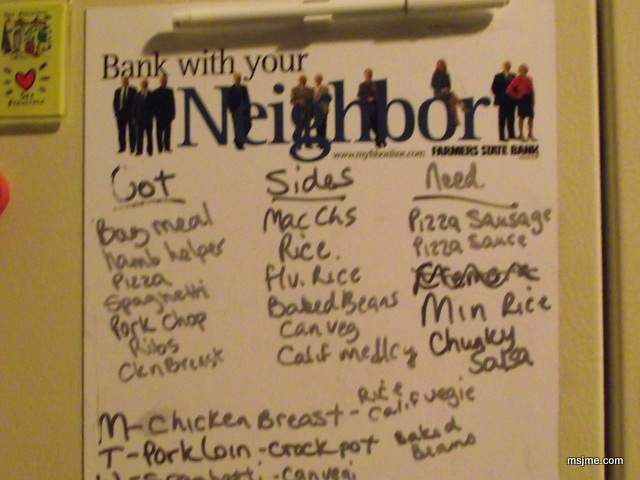 Bank with your
Neighbor
www.myfsbonline.com FARMERS STATE BANK
Got
Bag meal
hamb helper
Pizza
Spaghetti
Pork Chop
Ribs
Ckn Breast
Sides
Mac Chs
Rice.
Flv. Rice
Baked Beans
Can veg
Calif medley
Need
Pizza Sausage
Pizza Sauce
Min Rice
Chunky
Salsa
M-Chicken Breast - Rice
Calif vegie
T-Pork Loin - Crock pot Baked
Beans
W-Spaghetti - Can veg
msjme.com